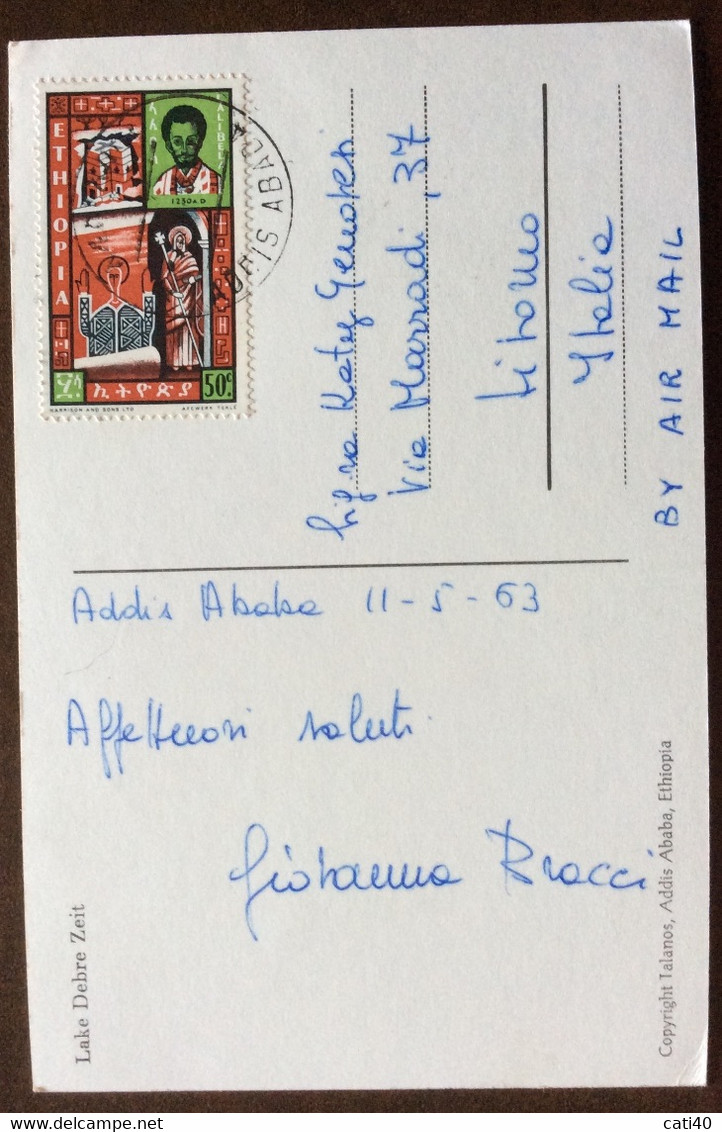 ETHIOPIA
LALIBELA
1230 A.D
ኢትዮጵያ
50c
HARRISON AND SONS LTD
AFEWERK TEKLE
ADDIS ABABA
Sig.ra Katy
Via Marradi, 37
Livorno
Italia
BY AIR MAIL
Addis Ababa 11-5-63
Affettuosi saluti
Giovanna Bracci
Lake Debre Zeit
Copyright Talanos, Addis Ababa, Ethiopia
cati40